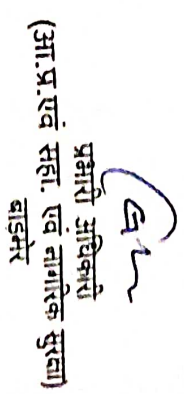 प्रभारी अधिकारी
(आ.प्र.एवं सहा. एवं नागरिक सुरक्षा)
बाड़मेर